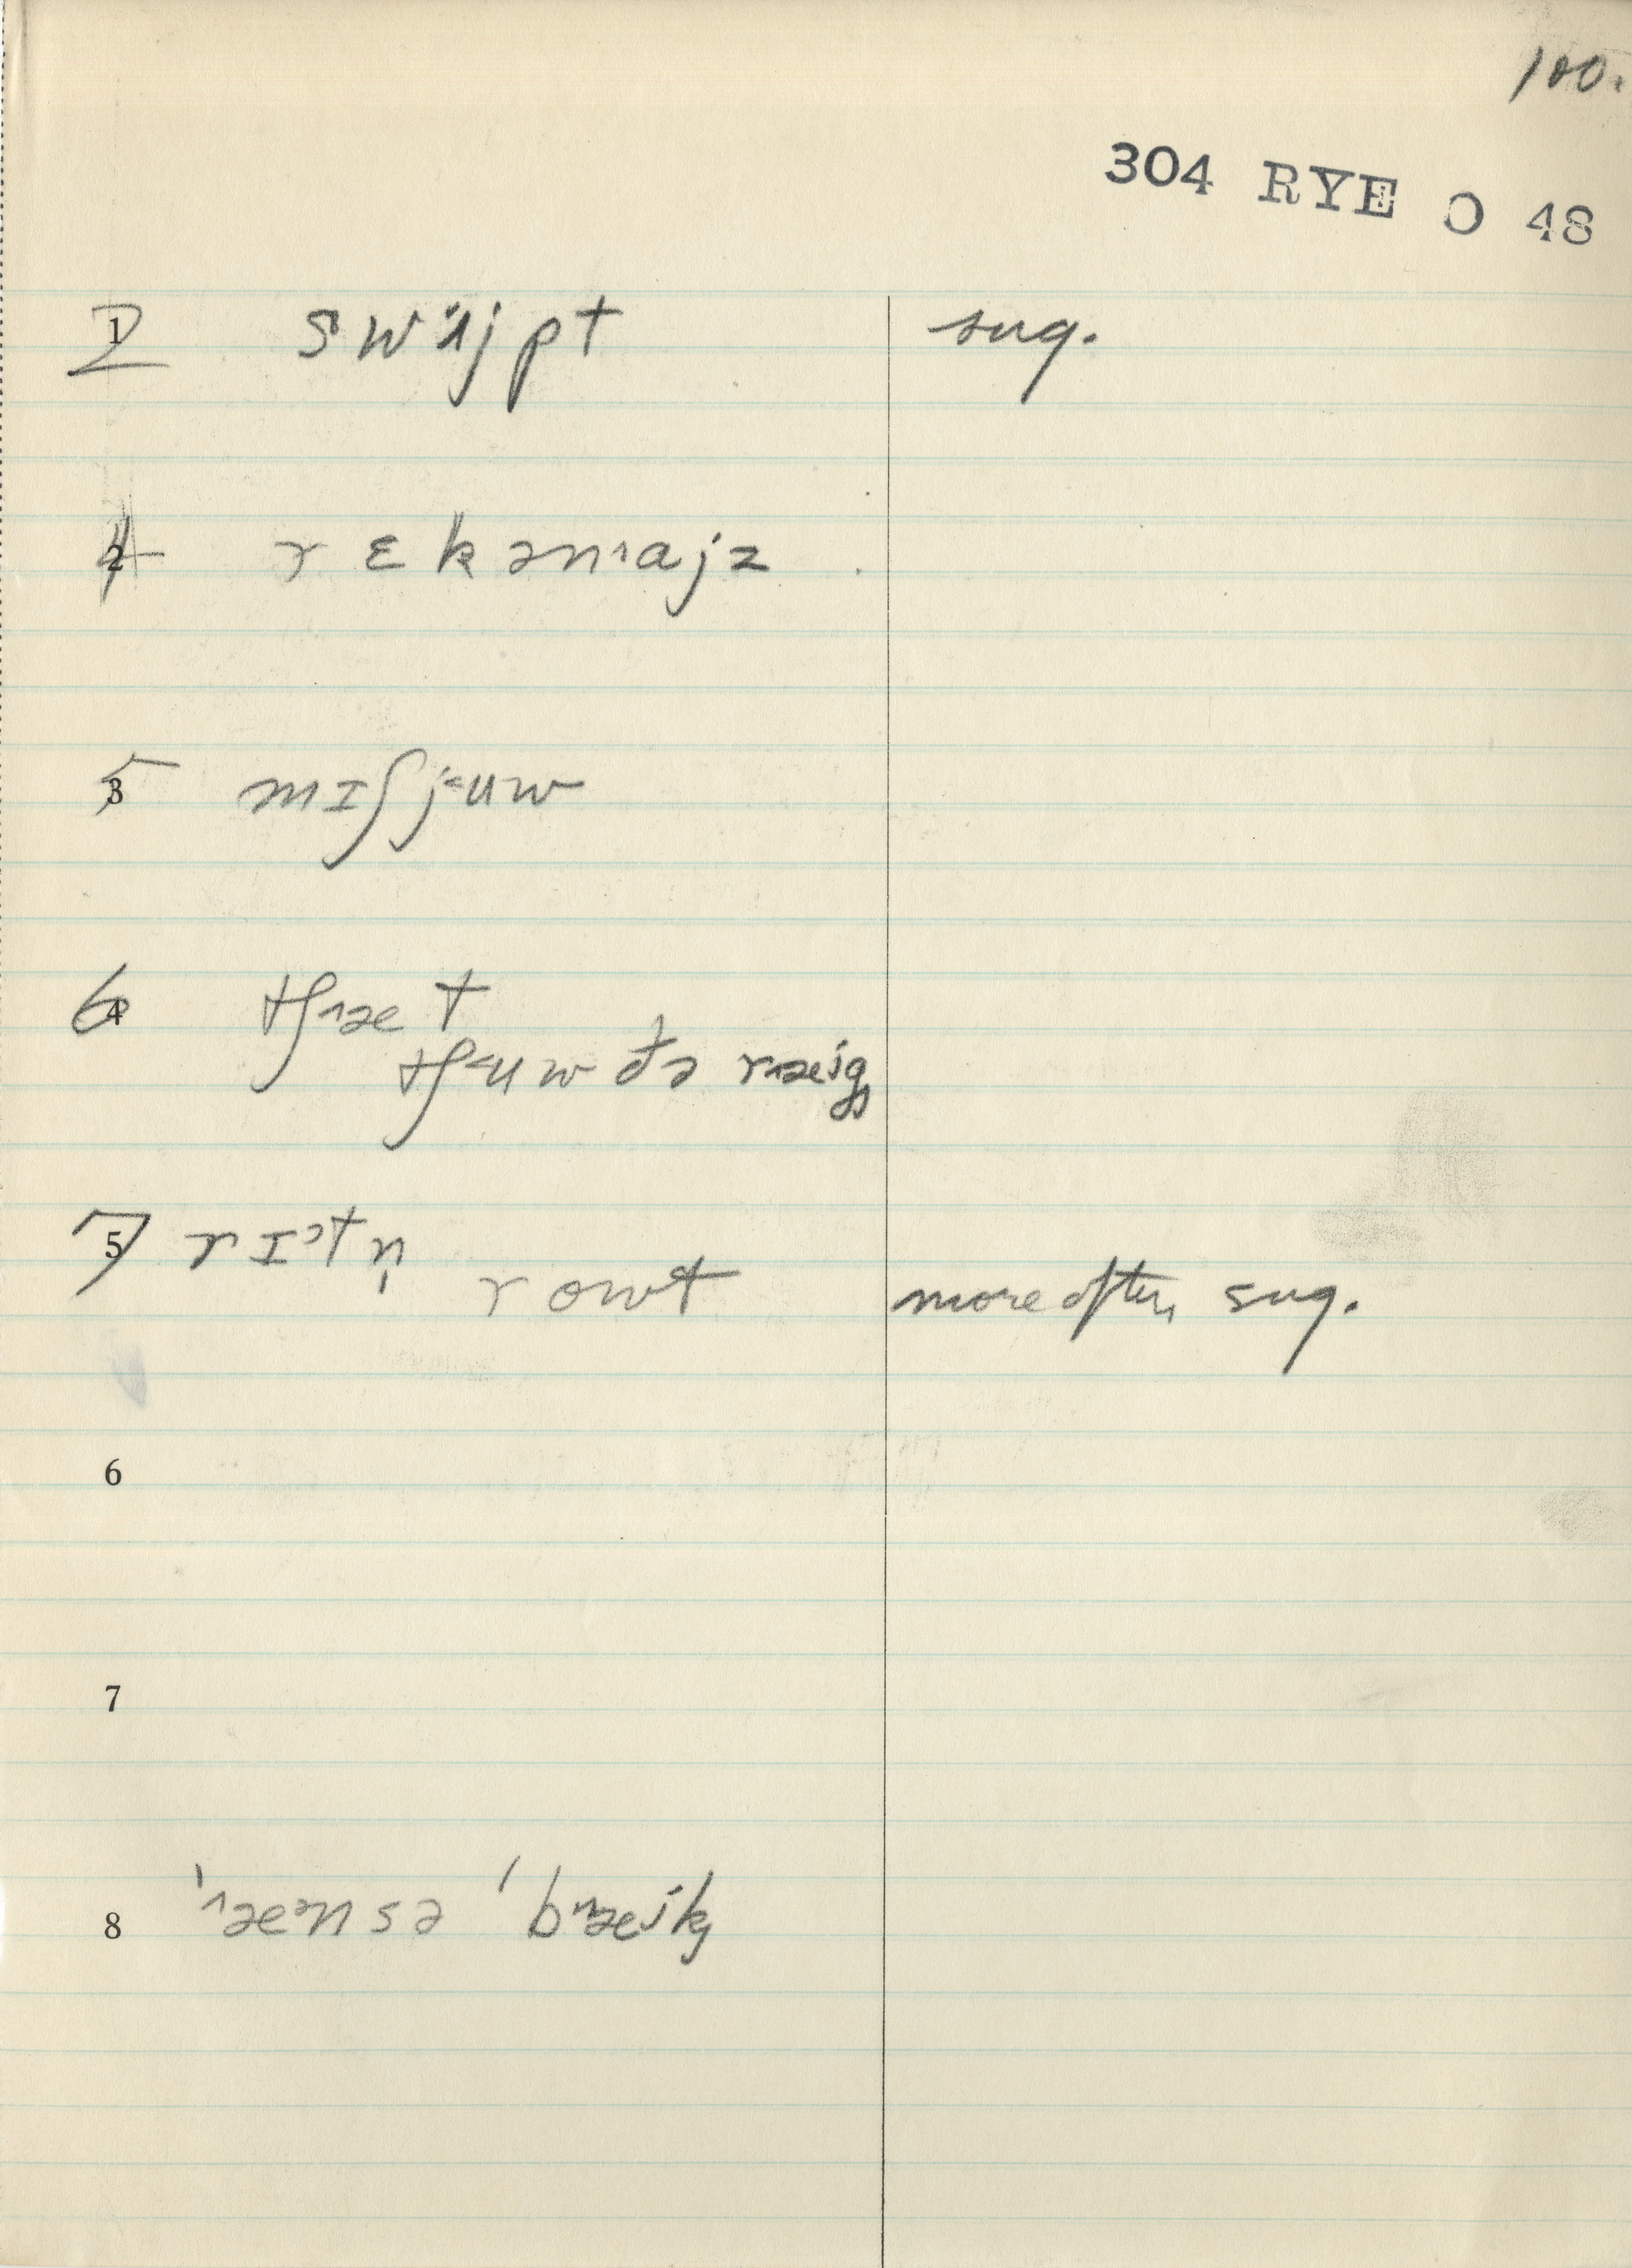 100.
304 RYE O 48
1 2 swɪ̈jpt sug.
2 4 rɛkənˈajz
3 5 mɪʃjʉw
4 6 tʃæt
tʃʉw ðə ræig
5 7 rɪʔtn̩
rowt more often sug.
6
7
8 'ænsə 'bræjk